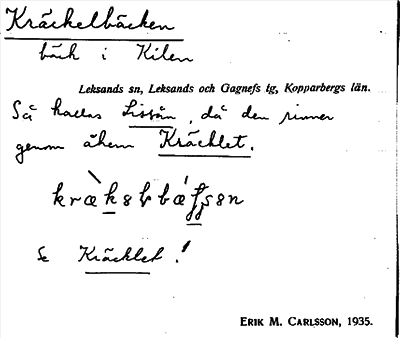 Kräckelbäcken
bäck i Kilen
Leksands sn, Leksands och Gagnefs tg, Kopparbergs län.
Så kallas Lissån, då den rinner
genom åkern Kräcklet.
Se Kräcklet!
ERIK M. CARLSSON, 1935.